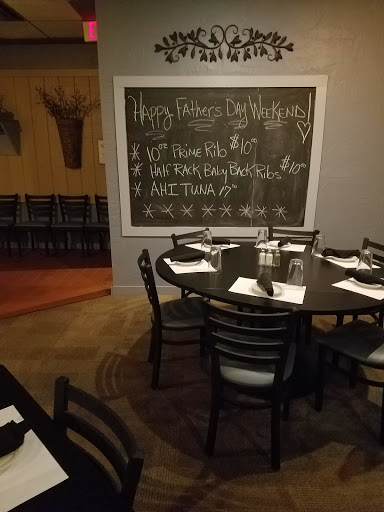 Happy Fathers Day Weekend!
* 10oz Prime Rib $10.00
* Half Rack Baby Back Ribs $10.00
* AHI TUNA 17.00